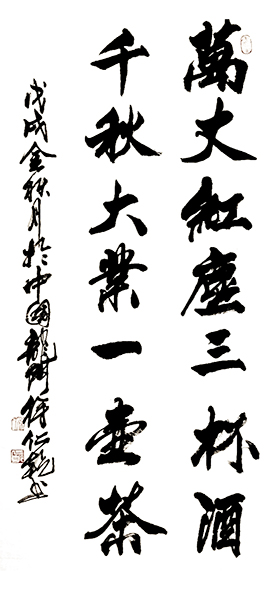 萬丈紅塵三杯酒
千秋大業一壺茶
戊戌金秋月於中國龍門